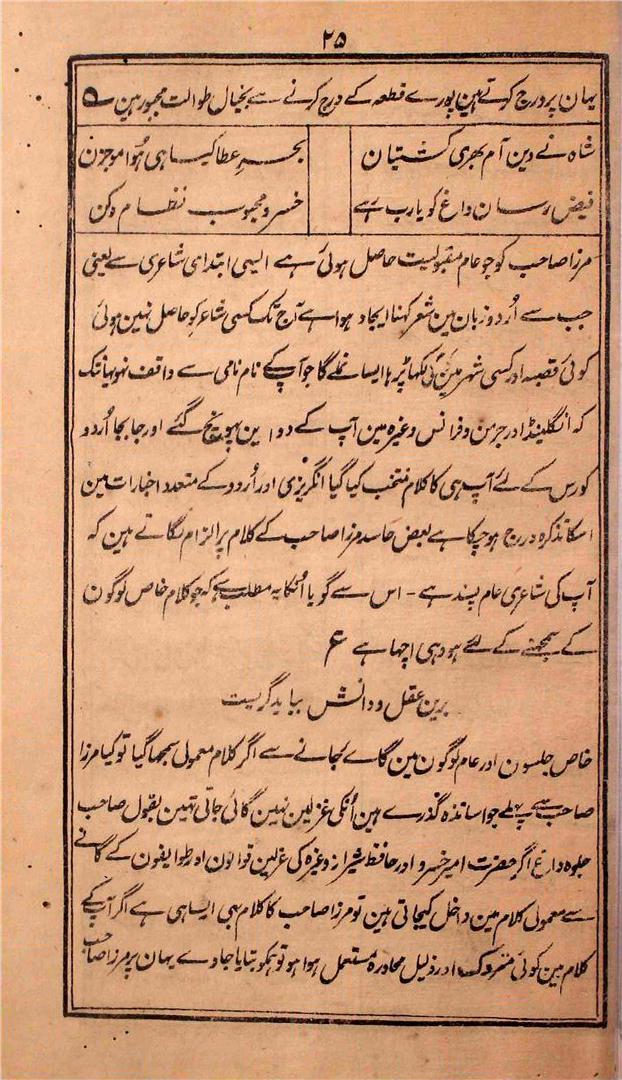 ۲۵
یہان پر درج کرتے ہین پورے قطعہ کے درج کرنے سے بخیال طوالت مجبور ہین ؎
شاہ نے دین آم بھری کشتیان
بحرِ عطا کیسا ہی ہُوا موجزن
فیض رسان داغ کو یارب رہے
خسرو محبوب نظام دکن
مرزا صاحب کو جو عام مقبولیت حاصل ہوئی ہے ایسی ابتدای شاعری سے یعنی
جب سے اُردو زبان مین شعر کہنا ایجاد ہوا ہے آج تک کسی شاعر کو حاصل نہین ہوئی
کوئی قصبہ اور کسی شہر مین کوئی لکھا پڑہا ایسا نہ ملے گا جو آپکے نام نامی سے واقف نہو یہانتک
کہ انگلینڈ اور جرمن و فرانس وغیرہ مین آپ کے دواوین پہونچ گئے اور جابجا اُردو
کورس کے لئے آپ ہی کا کلام منتخب کیا گیا انگریزی اور اُردو کے متعدد اخبارات مین
اسکا تذکرہ درج ہو چکا ہے بعض حاسد مرزا صاحب کے کلام پر الزام لگاتے ہین کہ
آپ کی شاعری عام پسند ہے - اس سے گویا اُنکا یہ مطلب ہے کہ جو کلام خاص لوگون
کے سمجھنے کے لئے ہو وہی اچھا ہے ع
برین عقل و دانش بباید گریست
خاص جلسون اور عام لوگون مین گاے بجانے سے اگر کلام معمولی سمجھا گیا تو کیا مرزا
صاحب سے پہلے جو اساتذہ گذرے ہین اُنکی غزلین نہین گائی جاتی تہین بقول صاحب
جلوہ داغ اگر حضرت امیر خسرو اور حافظ شیراز وغیرہ کی غزلین قوالون اور طوایفون کے گانے
سے معمولی کلام مین داخل کیجاتی ہین تو مرزا صاحب کا کلام بہی ایسا ہی ہے اگر آپ کے
کلام مین کوئی متروک اور ذلیل محاورہ مستعمل ہوا ہو تو ہمکو بتایا جاوے یہان پر مرزا صاحب